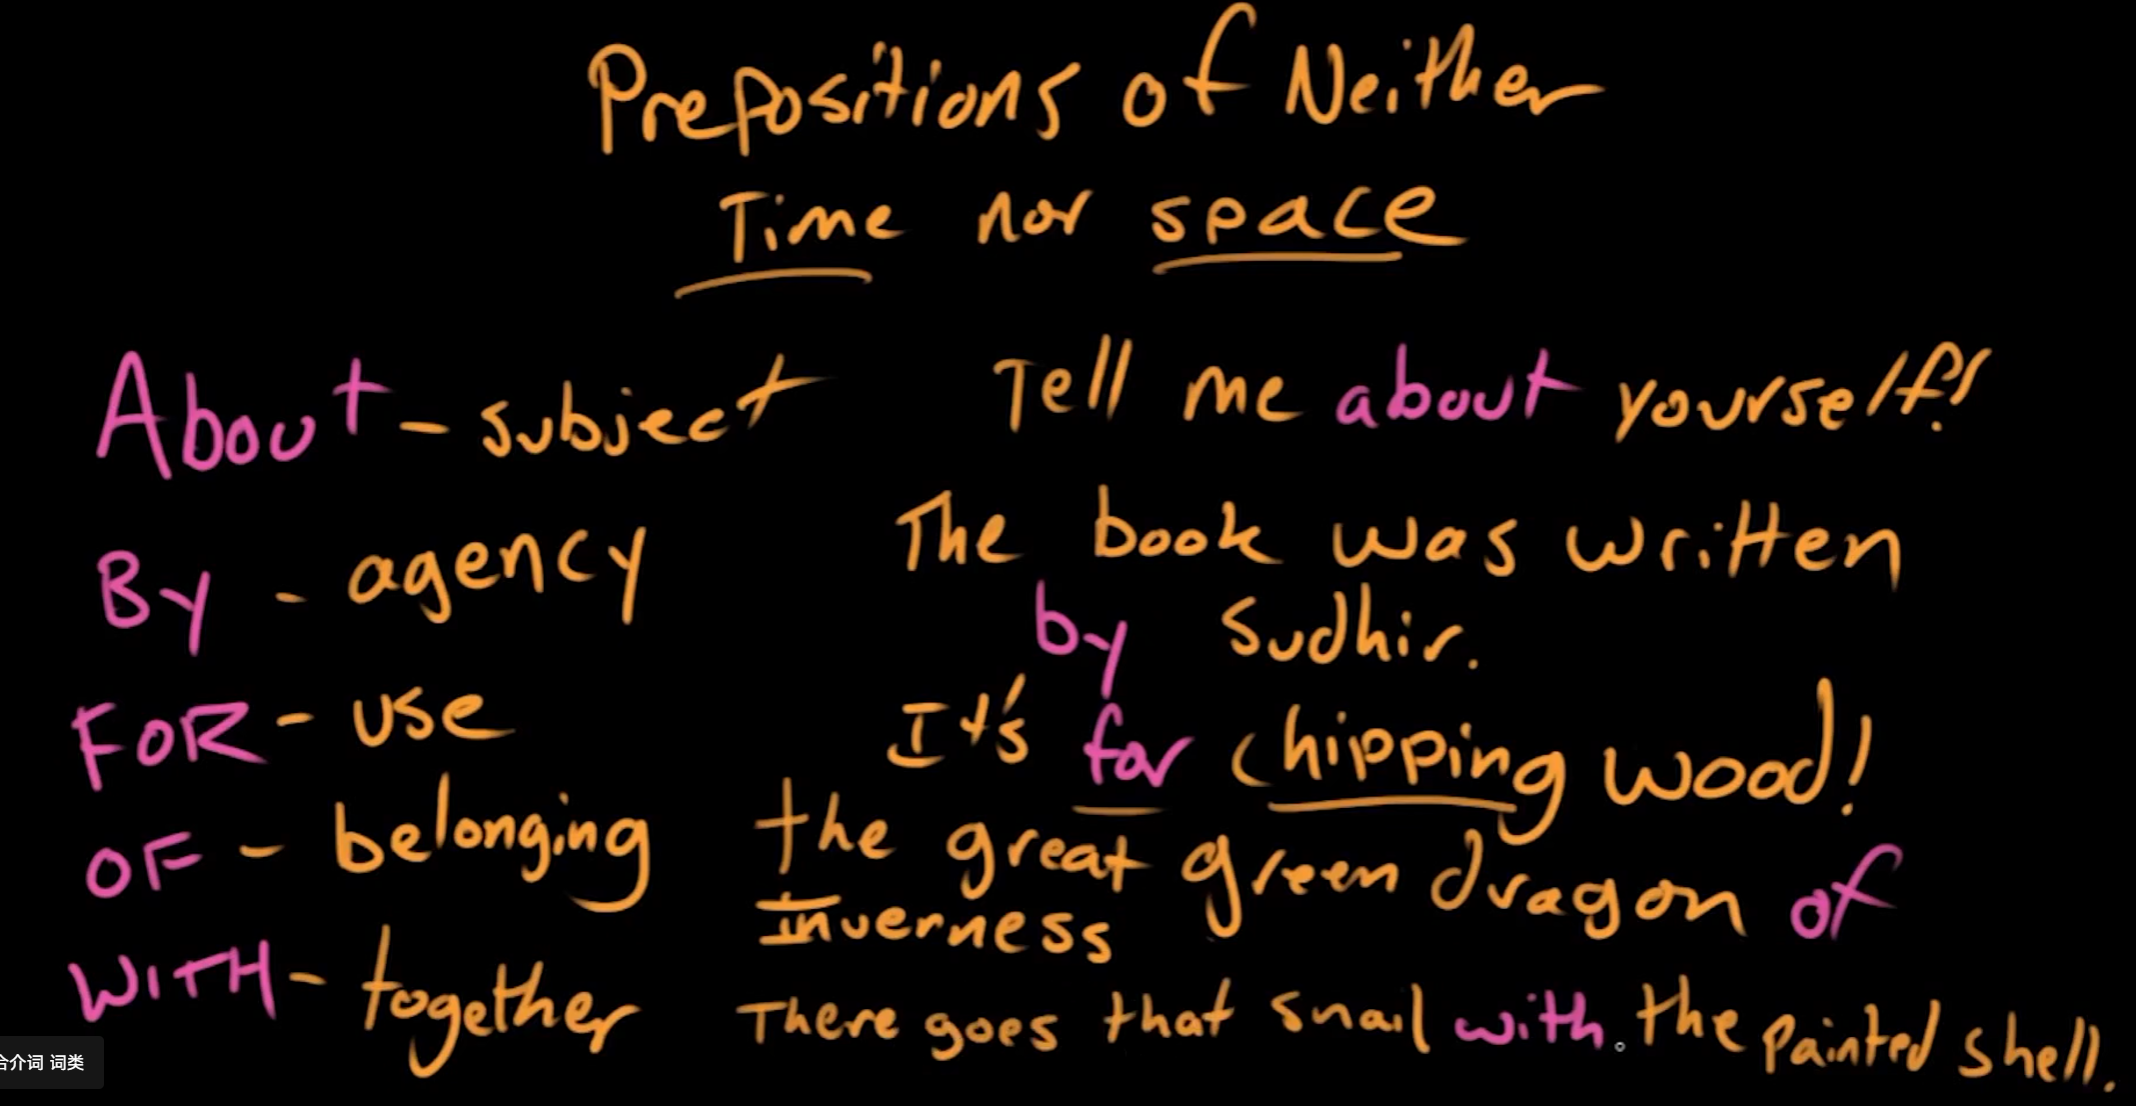 Prepositions of Neither
Time nor space
About - subject
Tell me about yourself!
By - agency
The book was written
by Sudhir.
FOR - use
It's for chipping wood!
OF - belonging
the great green dragon of
Inverness
WITH - together
There goes that snail with the painted shell.
合介词 词类